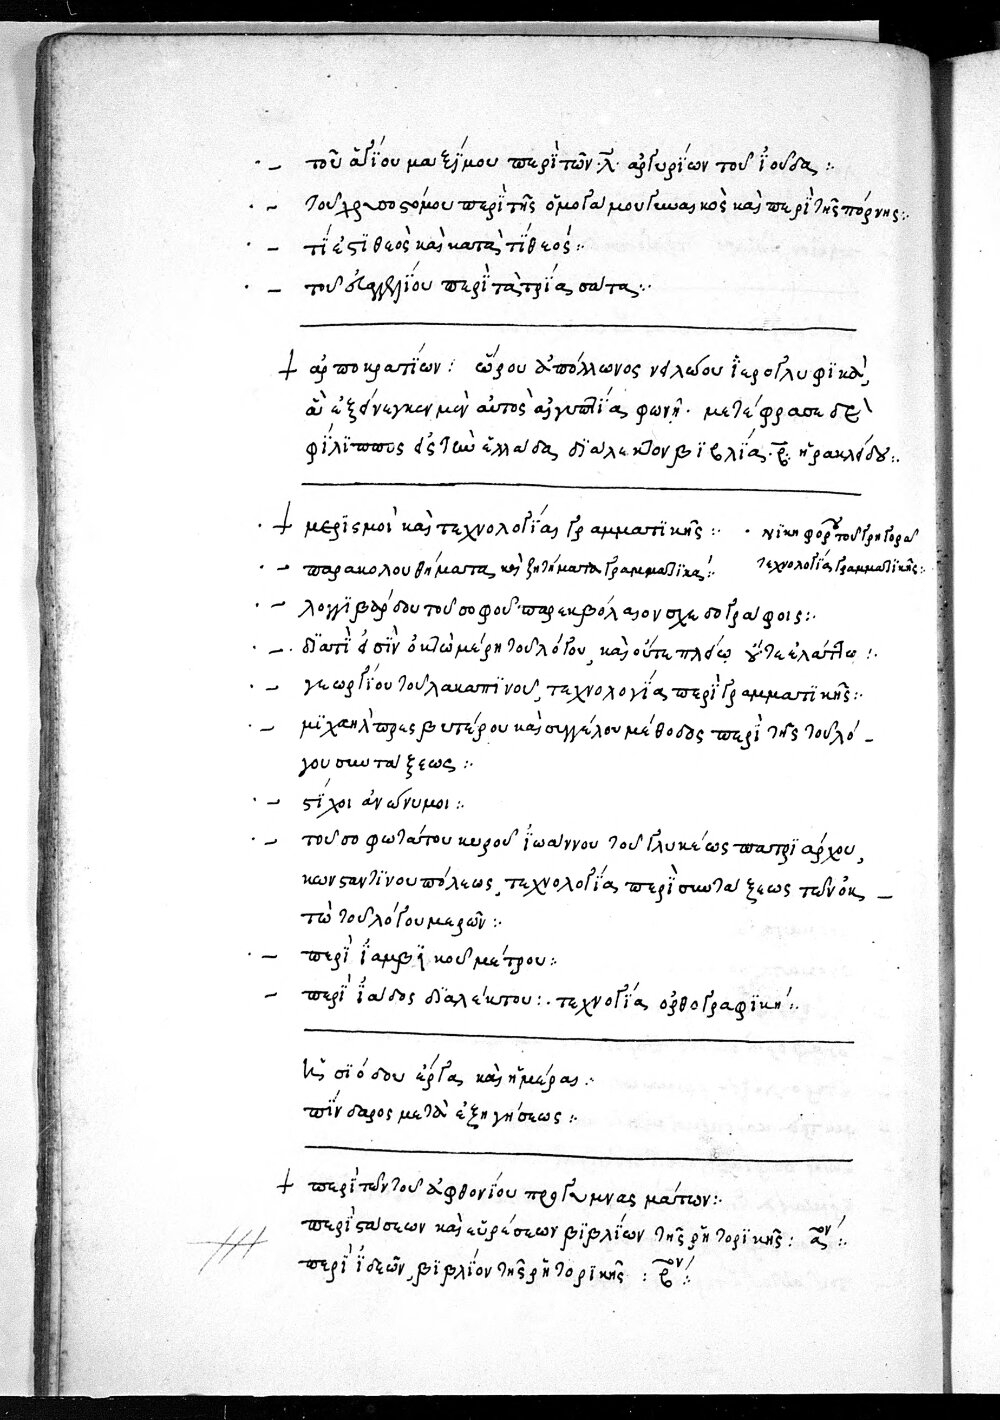 · – τοῦ ἁγίου μαξίμου περὶ τῶν ·λ· ἀργυρίων τοῦ ἰούδα :·
· – τοῦ χρυσοστόμου περὶ τῆς αἱμοῤῥούσης γυναικὸς καὶ περὶ τῆς πόρνης :·
· – τί ἐστὶ θεὸς καὶ κατὰ τί θεός :·
· – τοῦ εὐαγγελίου περὶ τὰ τρία σάτα :·
† ἁρποκρατίων : ὥρου ἀπόλλωνος νειλώου ἱερογλυφικὰ,
ἃ ἐξήνεγκεν μὲν αὐτὸς αἰγυπτίᾳ φωνῇ · μετέφρασε δὲ
φίλιππος εἰς τὴν ἑλλάδα διάλεκτον βιβλία ·β· ἡρακλείδου :·
· † μερισμοὶ καὶ τεχνολογίαι γραμματικῆς :· · νικηφόρου τοῦ γρηγορᾶ
τεχνολογία γραμματικῆς :·
· – παρακολουθήματα καὶ ζητήματα γραμματικά :·
· – λογγιβάρδου τοῦ σοφοῦ παρεκβόλαιον σχεδογράφοις :·
· – διατί εἰσὶν ὀκτὼ μέρη τοῦ λόγου, καὶ οὔτε πλείω οὔτε ἐλάττω :·
· – γεωργίου τοῦ λακαπίνου, τεχνολογία περὶ γραμματικῆς :·
· – μιχαὴλ πρεσβυτέρου καὶ συγγέλου μέθοδος περὶ τῆς τοῦ λό –
γου συντάξεως :·
· – στίχοι ἀνώνυμοι :·
· – τοῦ σοφωτάτου κυροῦ ἰωάννου τοῦ γλυκέως πατριάρχου,
κωνσταντινουπόλεως, τεχνολογία περὶ συντάξεως τῶν ὀκ –
τὼ τοῦ λόγου μερῶν :·
· – περὶ ἰαμβικοῦ μέτρου :·
– περὶ ἰάδος διαλέκτου :· τεχνολογία ὀρθογραφική :·
ἡσιόδου ἔργα καὶ ἡμέραι :·
πίνδαρος μετὰ ἐξηγήσεως :·
† περὶ τῶν τοῦ ἀφθονίου προγυμνασμάτων :·
περὶ στάσεων καὶ εὑρέσεων βιβλίων τῆς ῥητορικῆς : αον :·
περὶ ἰδεῶν, βιβλίον τῆς ῥητορικῆς : βον :·